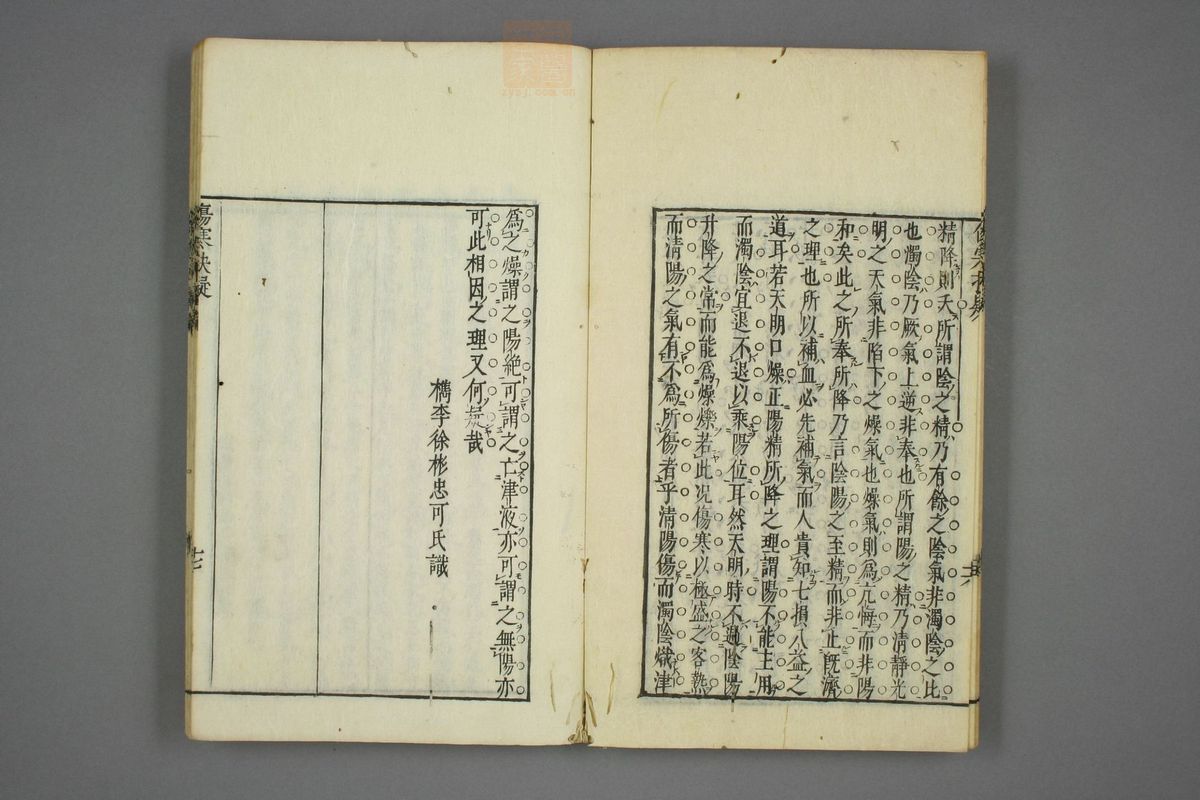 精降則夭所謂陰之精乃有餘之陰氣非濁陰之比
也濁陰乃厥氣上逆非奉也所謂陽之精乃清靜光
明之天氣非陷下之燥氣也燥氣則為亢悔而非陽
和矣此之所奉所降乃言陰陽之至精而非止既濟
之理也所以補血必先補氣而人貴知七損八益之
道耳若天朗口燥正陽精所降之理謂陽不能主用
而濁陰宜退不退以乘陽位耳然天明時不過陰陽
升降之常而能為燥爍若此况傷寒以極盛之客熱
而清陽之氣有不為所傷者乎清陽傷而濁陰熾津
為之燥謂之陽絕可謂之亡津液亦可謂之無陽亦
可此相因之理又何疑哉
檇李徐彬忠可氏識
傷寒抉疑
十七
zysj.com.cn